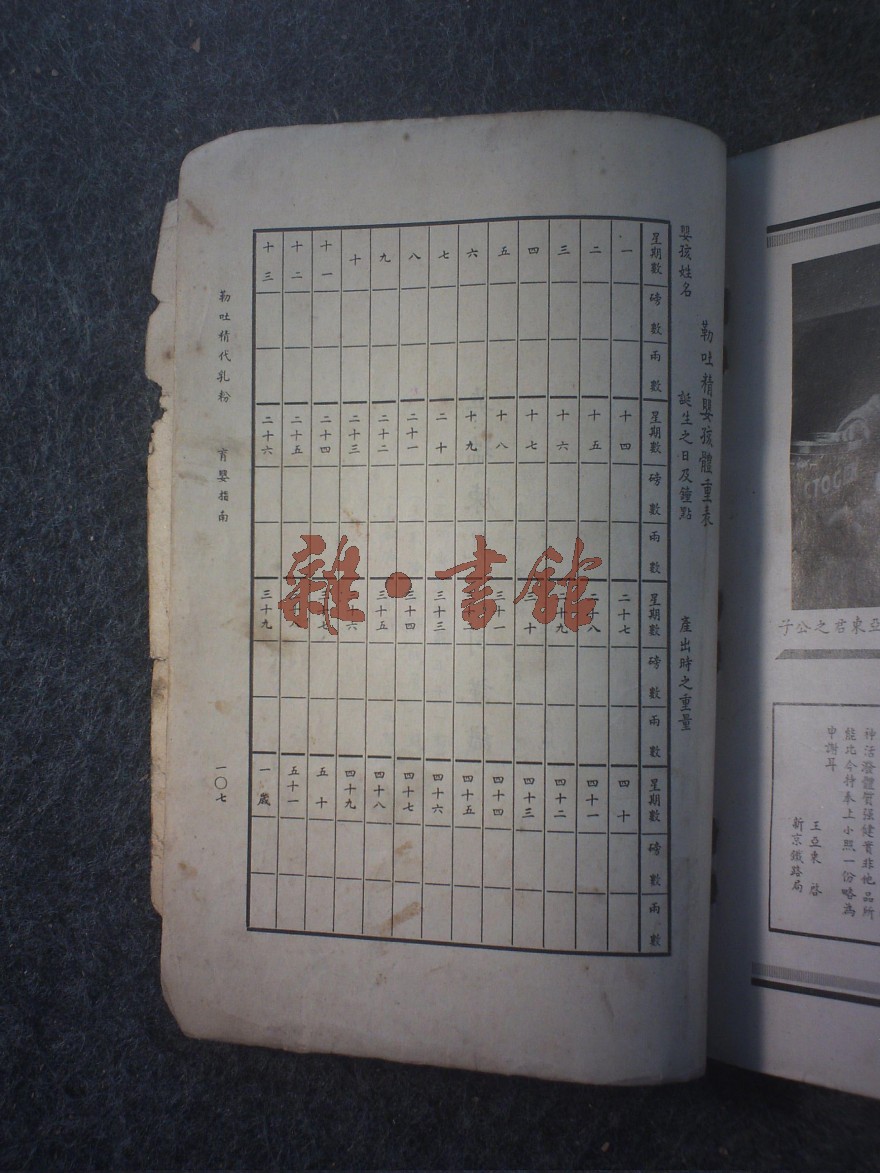 亞東君之公子
CTOGEN
神活潑體質强健實非他品所
能比今特奉上小照一份略為
申謝耳
王亞東 啓
新京鐵路局
勒吐精嬰孩體重表
嬰孩姓名 誕生之日及鐘點 產出時之重量
星期數 磅數 兩數 星期數 磅數 兩數 星期數 磅數 兩數 星期數 磅數 兩數
一 十四 二十七 四十
二 十五 二十八 四十一
三 十六 二十九 四十二
四 十七 三十 四十三
五 十八 三十一 四十四
六 十九 四十五
七 二十 三十三 四十六
八 二十一 三十四 四十七
九 二十二 三十五 四十八
十 二十三 三十六 四十九
十一 二十四 三十七 五十
十二 二十五 五十一
十三 二十六 三十九 一歲
勒吐精代乳粉 育嬰指南 一〇七
雜·書館